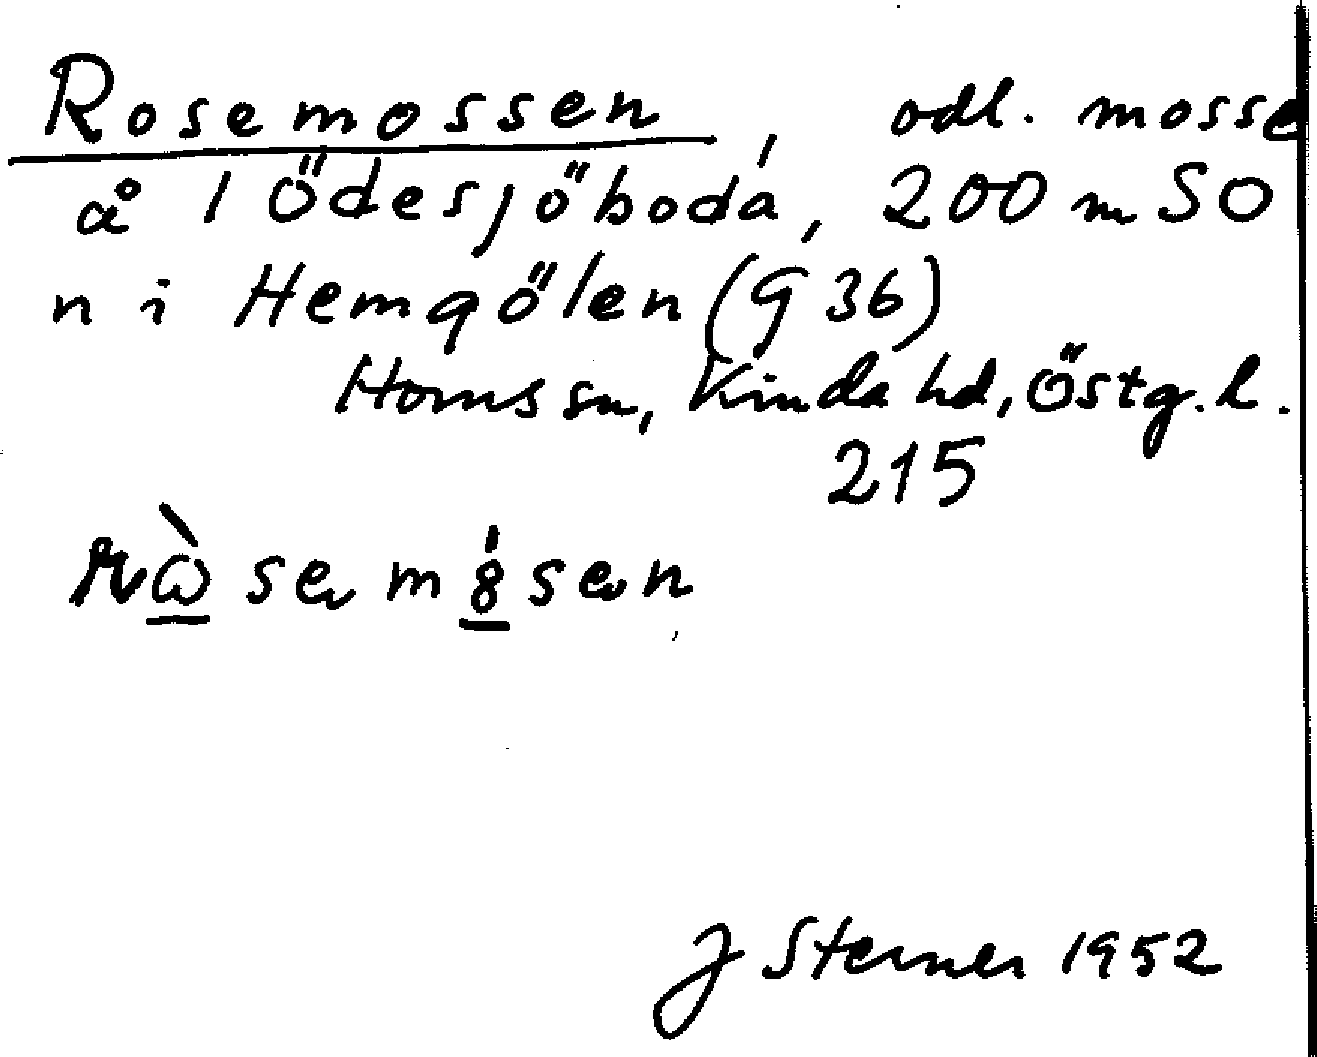 Rosemossen, odl. mosse
å 1 Ödesjöboda, 200 m SO
n i Hemgölen (G 36)
Horns sn, Kinda hd, Östg. l.
215
J Sterner 1952